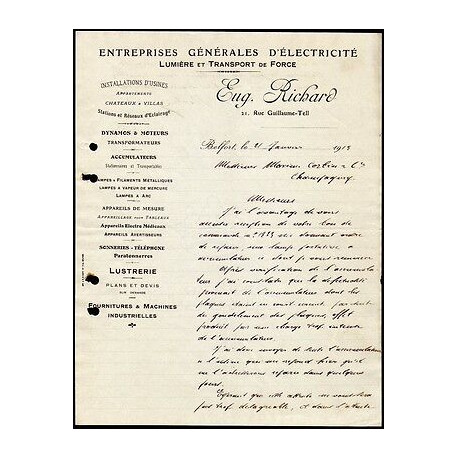 ENTREPRISES GÉNÉRALES D'ÉLECTRICITÉ
LUMIÈRE ET TRANSPORT DE FORCE
INSTALLATIONS D'USINES
APPARTEMENTS
CHATEAUX & VILLAS
Stations et Réseaux d'Eclairage
DYNAMOS & MOTEURS
TRANSFORMATEURS
ACCUMULATEURS
Stationnaires et Transportables
LAMPES A FILAMENTS MÉTALLIQUES
LAMPES A VAPEUR DE MERCURE
LAMPES A ARC
APPAREILS DE MESURE
APPAREILLAGE POUR TABLEAUX
Appareils Electro Médicaux
APPAREILS AVERTISSEURS
SONNERIES - TÉLÉPHONE
Paratonnerres
LUSTRERIE
PLANS ET DEVIS
SUR DEMANDE
FOURNITURES & MACHINES
INDUSTRIELLES
Eug. Richard
21, Rue Guillaume-Tell
Belfort, le 21 Janvier 1913
Messieurs
Champagney
Messieurs
J'ai l'avantage de vous
accuser réception de votre bon de
commande me donnant ordre
de réparer une lampe portative à
accumulateur et dont je vous remercie
Après vérification de l'accumula
teur j'ai constaté que la défectuosité
provenait de l'accumulateur dont les
plaques étaient en court circuit, par suite
de gondolement des plaques, effet
produit par une charge trop intense
de l'accumulateur
J'ai donc envoyé de suite l'accumulateur
à l'usine qui me répond bien qu'il
en l'achèverions réparer dans quelques
jours.
Espérant que cette attente ne vous sera
pas trop désagréable, et dans l'attente